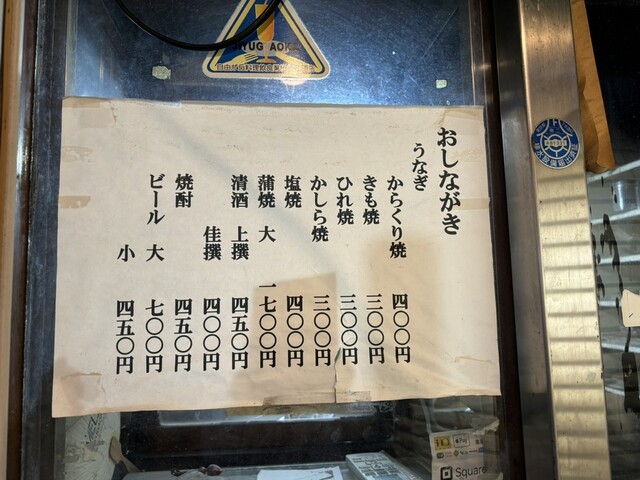 おしながき
うなぎ
からくり焼 四〇〇円
きも焼 三〇〇円
ひれ焼 三〇〇円
かしら焼 三〇〇円
塩焼 四〇〇円
蒲焼 大 一七〇〇円
清酒 上撰 四五〇円
佳撰 四〇〇円
焼酎 四五〇円
ビール 大 七〇〇円
小 四五〇円
Square